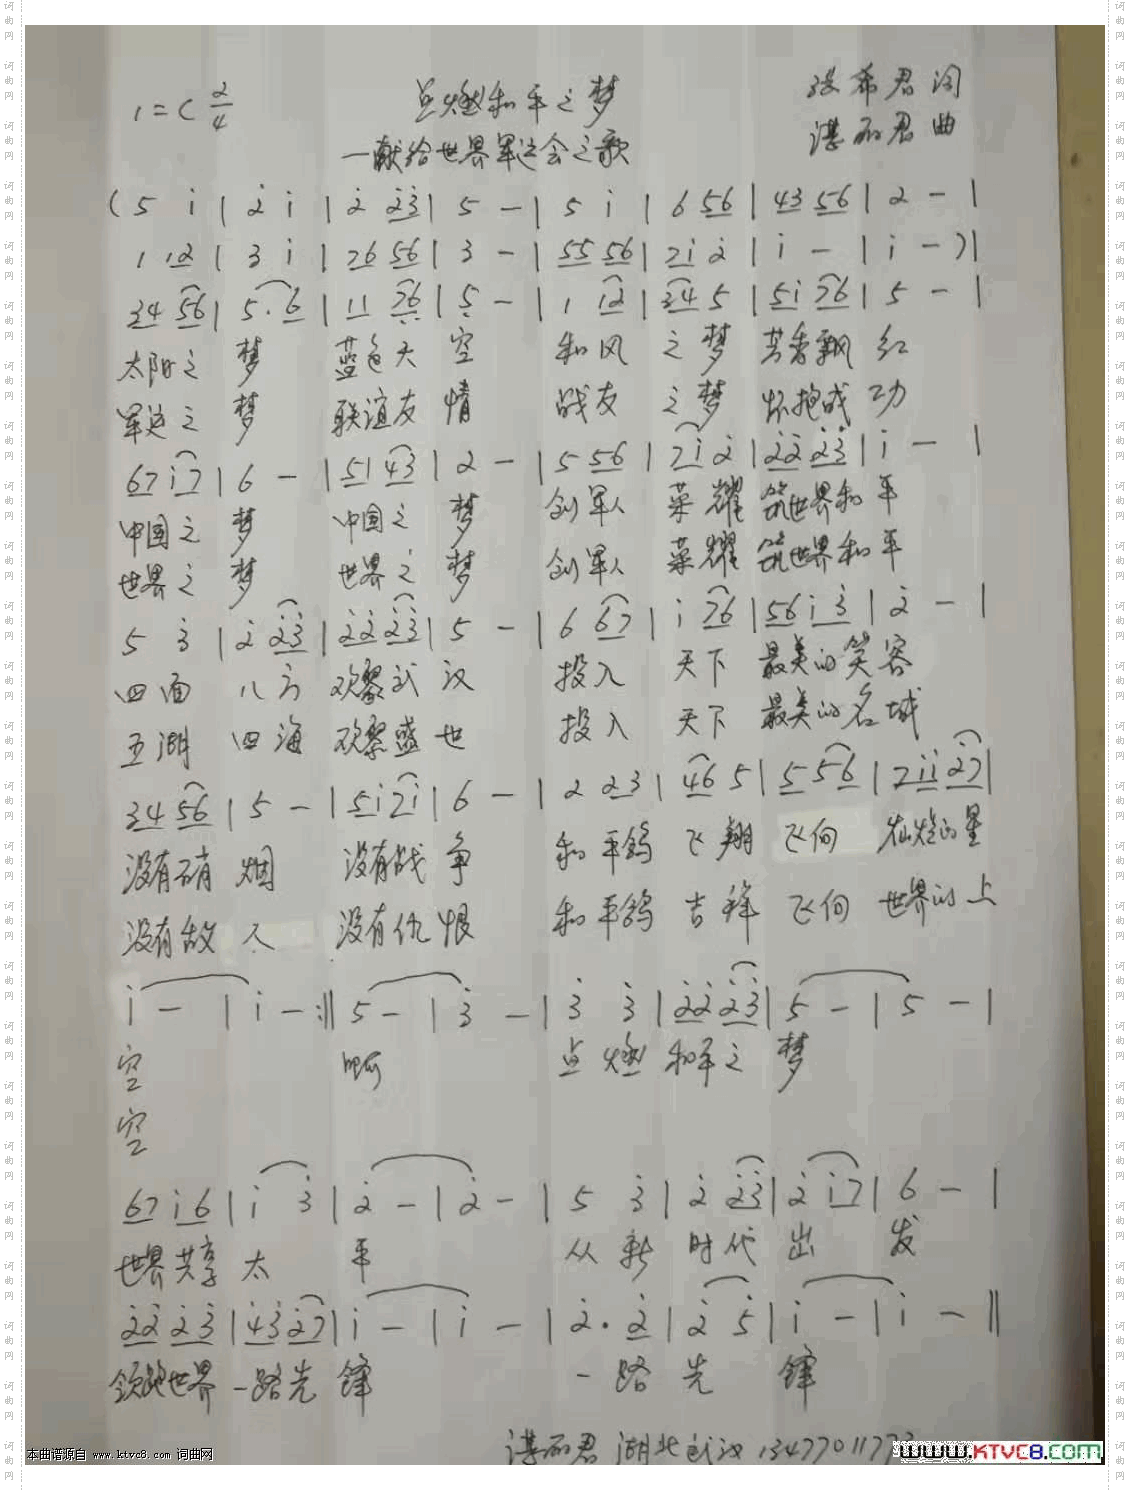 1=C 2/4 点燃和平之梦 张希君词
—献给世界军运会之歌 谌丽君曲
(5 i|2̇ i|2̇ 2̇3̇|5 -|5 i|6 56|43 56|2 -|
1 12|3 i|76 56|3 -|55 56|7i 2̇|i -|i -)|
34 56|5·6|11 7̣6̣|5̣ -|1 12|34 5|5i 76|5 -|
太阳之 梦 蓝色天 空 和风 之 梦 芳香飘 红
军运之 梦 联谊友 情 战友 之 梦 怀抱成 功
67 i7|6 -|51 43|2 -|5 56|7i 2̇|2̇2̇ 2̇3̇|i -|
中国之 梦 中国之 梦 创军人 荣耀 筑世界和 平
世界之 梦 世界之 梦 创军人 荣耀 筑世界和 平
5 3̇|2̇ 2̇3̇|2̇2̇ 2̇3̇|5 -|6 67|i 76|56 i 3̇|2̇ -|
四面 八方 欢聚武 汉 投入 天下 最美的笑容
五湖 四海 欢聚盛世 投入 天下 最美的名城
34 56|5 -|5i 7i|6 -|2 23|46 5|5 56|7ii 2̇7|
没有硝 烟 没有战 争 和平鸽 飞翔 飞向 灿烂的星
没有敌 人 没有仇 恨 和平鸽 吉祥 飞向 世界的上
i -|i -:‖5 -|3̇ -|3̇ 3̇|2̇2̇ 2̇3̇|5 -|5 -|
空 啊 点燃 和平之 梦
空
67 i6|i 3̇|2̇ -|2̇ -|5 3̇|2̇ 2̇3̇|2̇ i7|6 -|
世界共享 太 平 从新 时代 出 发
2̇2̇ 2̇3̇|4̇3̇ 2̇7|i -|i -|2̇· 2̇|2̇ 5|i -|i -‖
领跑世界 一路先 锋 一路 先 锋
谌丽君 湖北武汉
本曲谱源自 www.ktvc8.com 词曲网
www.KTVC8.com
词曲网